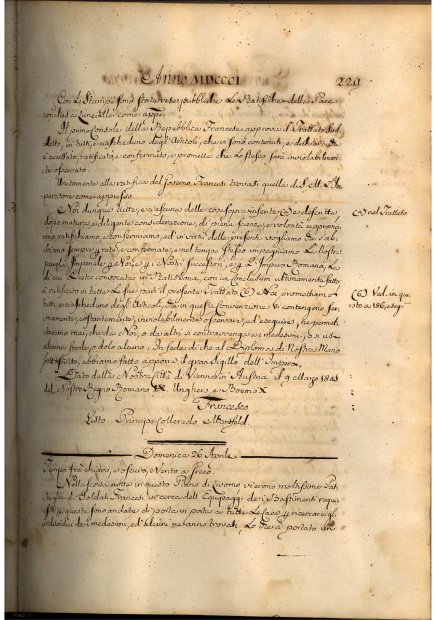 Anno MDCCCI
229
Con le Stampe sono state rese pubbliche le Ratifiche della Pace
conclusa a Luneville come appr.
Il primo Console della Repubblica Francese approva il Trattato sud.
detto, in tutti, e ciascheduno degli Articoli, che vi sono contenuti, e dichiara che
è accettato, ratificato, e confermato, e promette che lo stesso sarà inviolabilmente
osservato.
Unitamente alla ratifica del Governo Francese trovasi quella di S. M. l'Im-
peratore come appresso.
Noi dunque tutte, e ciascuna delle cose sopra inserite (a) e descritte
(a) nel Trattato
di matura, e diligente considerazione, di piena scienza, e volontà approvia-
mo ratifichiamo, e confermiamo, ed in virtù della presente vogliamo che
siano ferme, rate, e confermate, e nel tempo stesso impegniamo la Nostra
parola Imperiale p. Noi, e p. i Nostri Successori, e p. l'Impero Romano, la
di cui Dieta convocata in Ratisbona, con in Conclusum ultimamente fatto,
à ratificato in tutte le sue parti il presente Trattato (b) Noi promettiamo
(b) Ved. in que-
sto a 186, e seg.
tutti, e ciascheduno degli Articoli, che in questa Convenzione vi contengono fer-
mamente, costantemente, inviolabilmente osservare, ed eseguire, ne permet-
teremo mai, che da Noi, o da altri si contravvenga a' medesimi, p.
alcuna frode, o dolo alcuno. In fede di che al Diploma di Nostra Mano
sottoscritto, abbiamo fatto apporre il gran Sigillo dell'Impero.
Dato dalla Nostra Città di Vienna in Austria il 9 Marzo 1801
del Nostro Regno Romano IX Unghero, e Boemo X
Francesco
Sotto. Principe Colloredo Mansfeld
Domenica 26 Aprile
Tempo frà chiaro, e oscuro, e Vento a Greco.
Nella scorsa notte in questa Piano di Livorno vi erono moltissime Pat-
tuglie di Soldati Francesi in cerca dell'Equipaggi de i Bastimenti requi-
siti, e queste sono andate di porta in porta a tutte le case p. ricercare gl'
individui de i medesimi, ed alcuni ne hanno trovati,